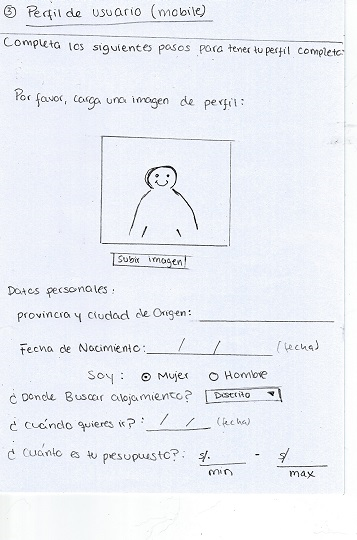 ③ Perfil de usuario (mobile)
Completa los siguientes pasos para tener tu perfil completo:
Por favor, carga una imagen de perfil:
Subir imagen
Datos personales:
provincia y ciudad de Origen: ____
Fecha de Nacimiento: __/__/__ (fecha)
Soy: Mujer Hombre
¿Donde Buscar alojamiento? Distrito
¿cuándo quieres ir?: __/__/__ (fecha)
¿Cuánto es tu presupuesto?: s/. - s/
min max